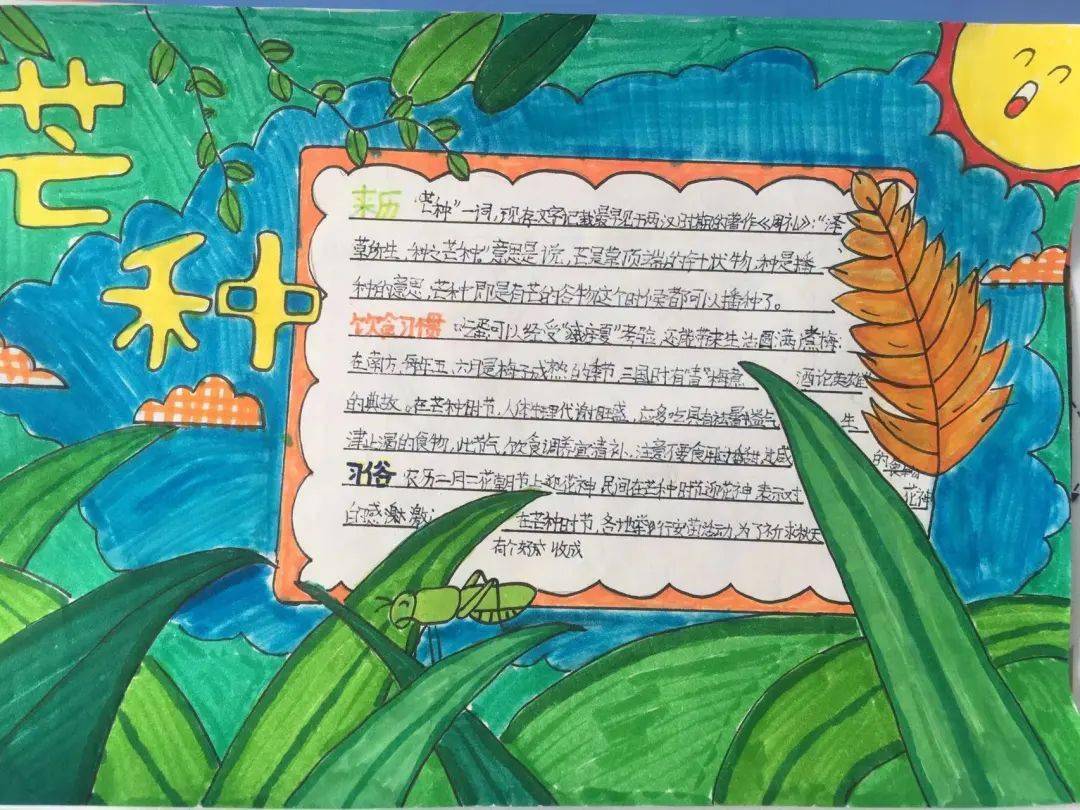 芒种
来历 "芒种"一词,现存文字记载最早见于两汉时期的著作《周礼》:"泽
草所生,种之芒种"意思是说,芒是草顶端的针状物,种是播
种的意思,芒种即是有芒的谷物这个时候都可以播种了。
饮食习惯 吃蛋可以经受"疰夏"考验,还能带来生活圆满,煮梅:
在南方,每年五、六月是梅子成熟的季节,三国时有"青梅煮 酒论英雄
的典故。在芒种时节,人体新陈代谢旺盛,应多吃具有祛暑益气 生
津止渴的食物,此节气,饮食调养宜清补,注意不要食用过
习俗 农历二月二花朝节上迎花神,民间在芒种时节 花神 表示对 花神
的感激 在芒种时节,各地举行安苗活动,为了祈求秋天
有个好 收成